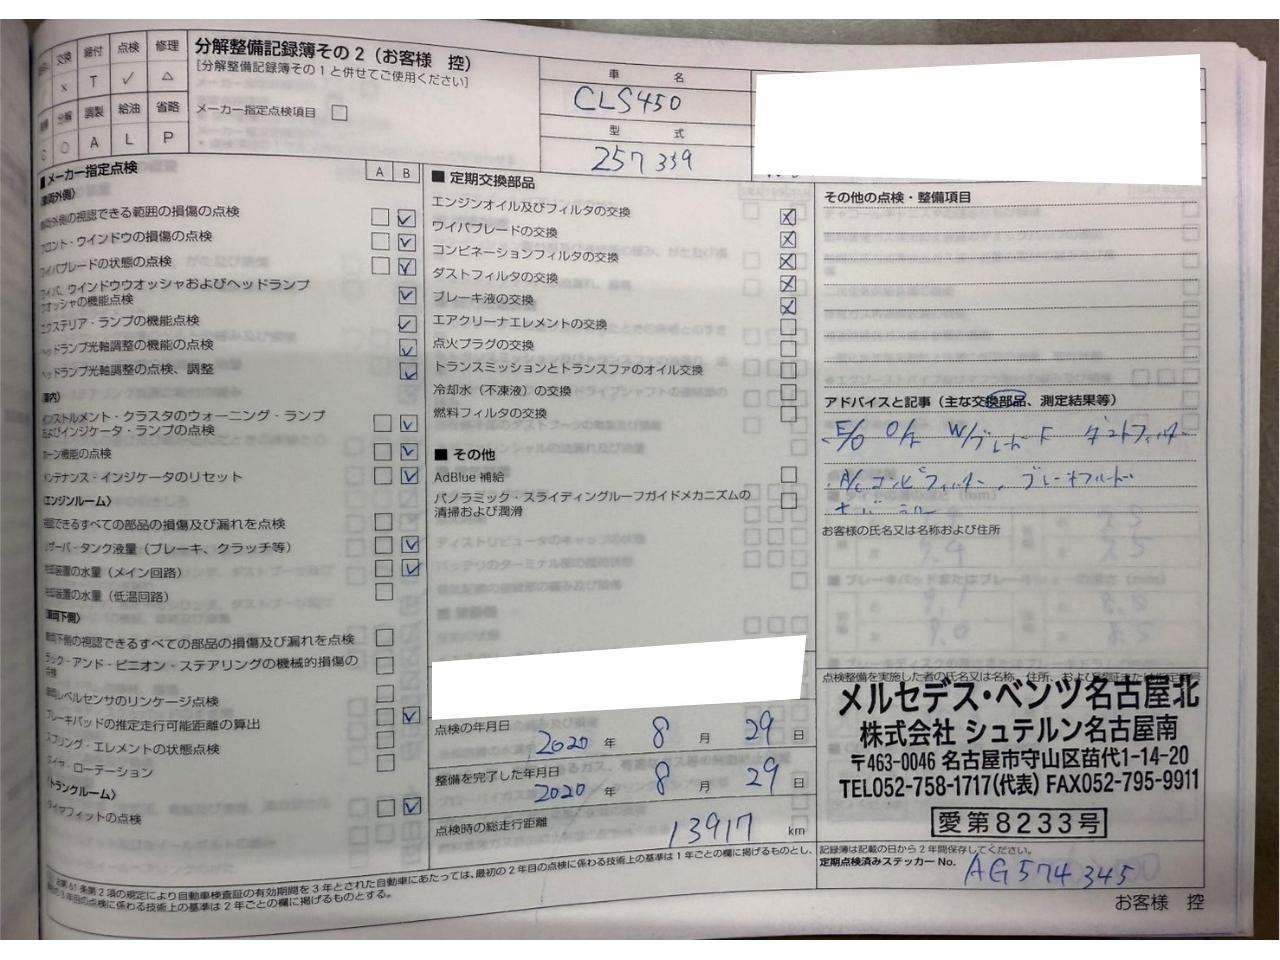 交換 締付 点検 修理
× T ✓ △
分解 調製 給油 省略
○ A L P
分解整備記録簿その2(お客様 控)
[分解整備記録簿その1と併せてご使用ください]
メーカー指定点検項目
車 名
CLS450
型 式
257 359
■メーカー指定点検
A B
外側の視認できる範囲の損傷の点検
フロント・ウインドウの損傷の点検
ワイパブレードの状態の点検
ワイパ、ウインドウウオッシャおよびヘッドランプ
ウオッシャの機能点検
エクステリア・ランプの機能点検
ヘッドランプ光軸調整の機能の点検
ヘッドランプ光軸調整の点検、調整
インストルメント・クラスタのウォーニング・ランプ
およびインジケータ・ランプの点検
ホーン機能の点検
メンテナンス・インジケータのリセット
〈エンジンルーム〉
視認できるすべての部品の損傷及び漏れを点検
リザーバ・タンク液量(ブレーキ、クラッチ等)
冷却装置の水量(メイン回路)
冷却装置の水量(低温回路)
〈車両下側〉
車両下側の視認できるすべての部品の損傷及び漏れを点検
ラック・アンド・ピニオン・ステアリングの機械的損傷の
点検
車両レベルセンサのリンケージ点検
ブレーキパッドの推定走行可能距離の算出
スプリング・エレメントの状態点検
タイヤ・ローテーション
〈トランクルーム〉
タイヤフィットの点検
■ 定期交換部品
エンジンオイル及びフィルタの交換
ワイパブレードの交換
コンビネーションフィルタの交換
ダストフィルタの交換
ブレーキ液の交換
エアクリーナエレメントの交換
点火プラグの交換
トランスミッションとトランスファのオイル交換
冷却水(不凍液)の交換
燃料フィルタの交換
■ その他
AdBlue 補給
パノラミック・スライディングルーフガイドメカニズムの
清掃および潤滑
点検の年月日
2020 年 8 月 29 日
整備を完了した年月日
2020 年 8 月 29 日
点検時の総走行距離
13917 km
その他の点検・整備項目
アドバイスと記事(主な交換部品、測定結果等)
E/O O/F W/ブレード F ダストフィルター
A/C コンビフィルター、ブレーキフルード
お客様の氏名又は名称および住所
点検整備を実施した者の氏名又は名称、住所、および認証または指定番号
メルセデス・ベンツ名古屋北
株式会社 シュテルン名古屋南
〒463-0046 名古屋市守山区苗代1-14-20
TEL052-758-1717(代表) FAX052-795-9911
愛第8233号
記録簿は記載の日から2年間保存してください。
定期点検済みステッカー No. AG574345
法第61条第2項の規定により自動車検査証の有効期間を3年とされた自動車にあたっては、最初の2年目の点検に係わる技術上の基準は1年ごとの欄に掲げるものとし、
3年目の点検に係わる技術上の基準は2年ごとの欄に掲げるものとする。
お客様 控